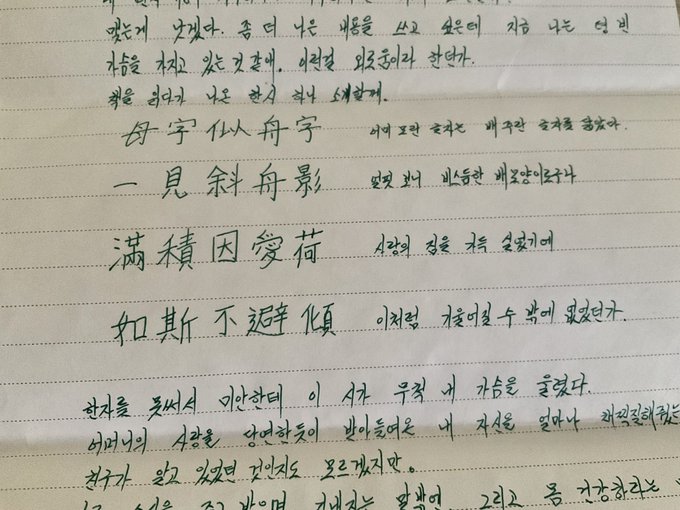 맺는게 낫겠다. 좀 더 나은 내용을 쓰고 싶은데 지금 나는 텅 빈
가슴을 가지고 있는것 같애. 이런걸 외로움이라 한던가.
책을 읽다가 나온 한시 하나 소개할게.
母字似舟字 어미 모란 글자는 배 주란 글자를 닮았다.
一見斜舟影 얼핏 보니 비스듬한 배모양이로구나
滿積因愛荷 사랑의 짐을 가득 실었기에
如斯不避傾 이처럼 기울어질 수 밖에 없었던가.
한자를 못써서 미안한데 이 시가 무척 내 가슴을 울렸다.
어머니의 사랑을 당연한듯이 받아들여온 내 자신을 얼마나 채찍질해줬는
친구가 알고 있었던 것인지도 모르겠지만.
받으며 말밖엔. 그리고 몸 건강하라는